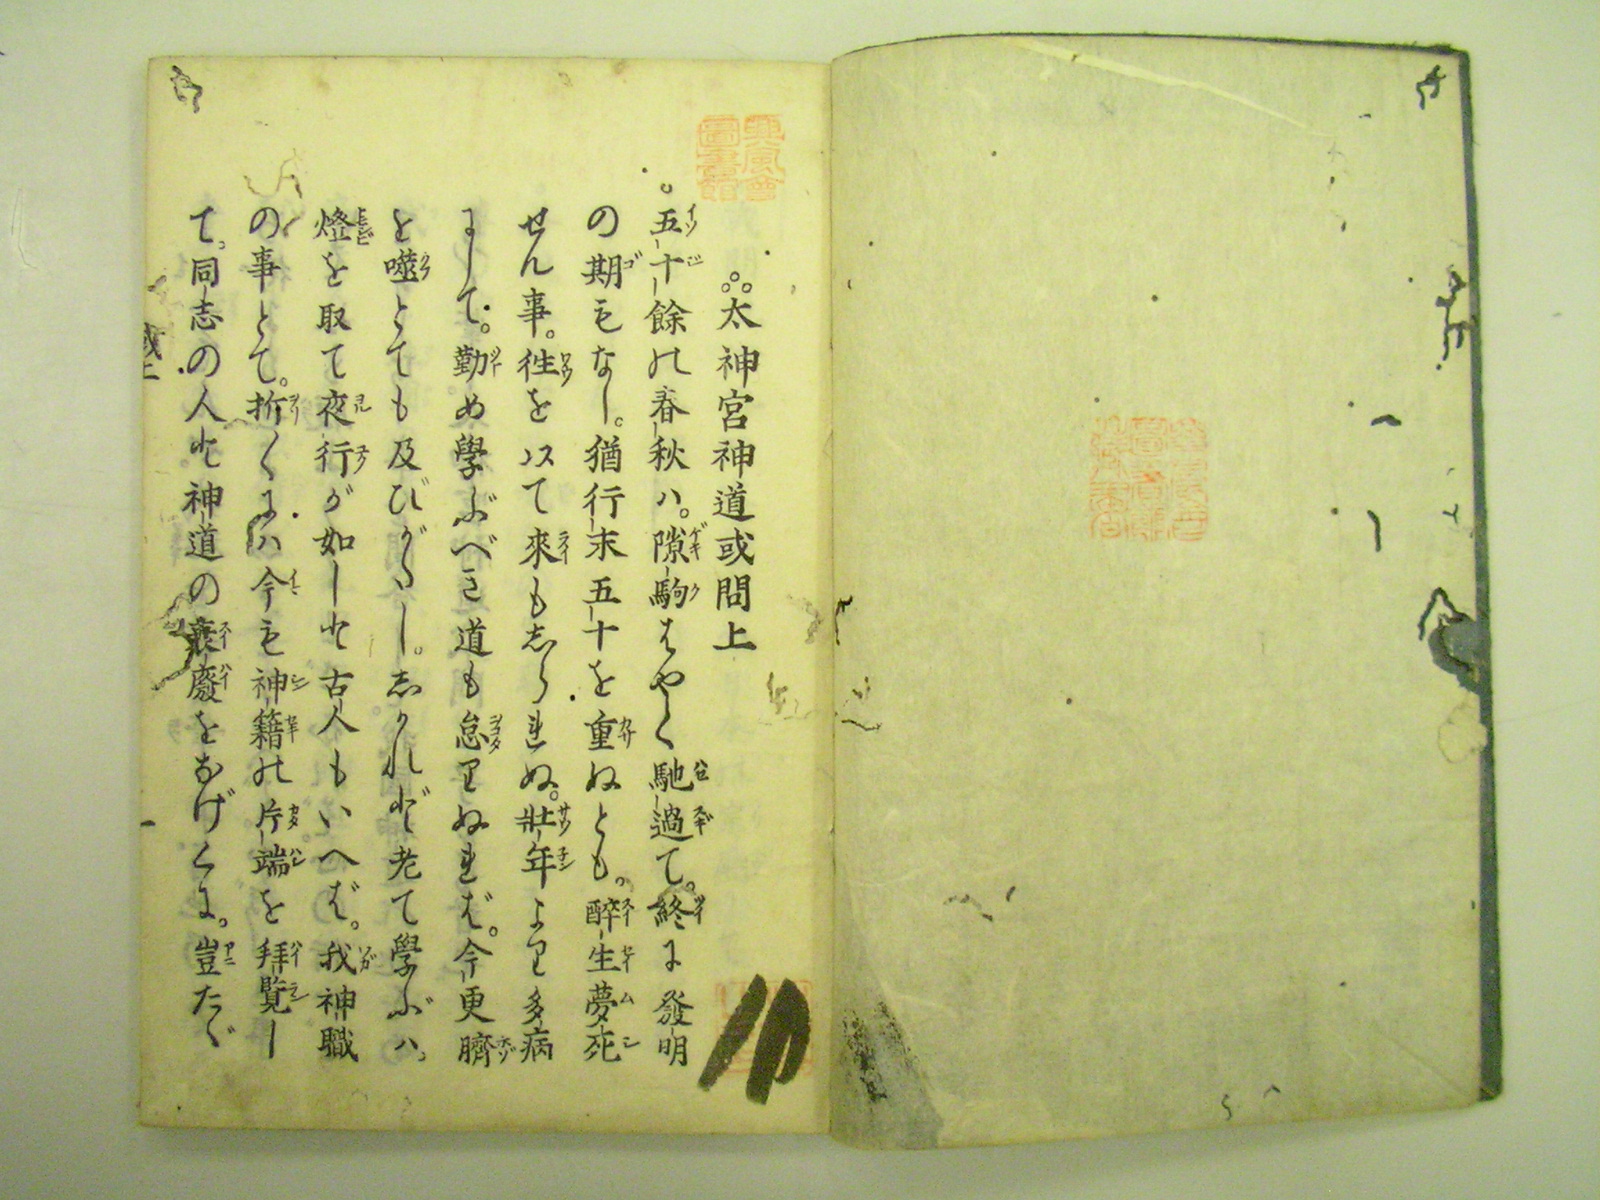 太神宮神道或問上
五十餘の春秋ハ。隙駒はやく馳過て。終に發明
の期もなし。猶行末五十を重ぬとも。醉生夢死
せん事。徃を以て來もしられぬ。壯年より多病
にして。勤め學ぶべき道も怠りぬれば。今更臍
を噬とても及びがたし。しかれど老て學ぶハ。
燈を取て夜行が如しと古人もいへば。我神職
の事とて。折〱にハ今も神籍の片端を拜覧し
て。同志の人と神道の衰廢をなげくに。豈たゞ
或上